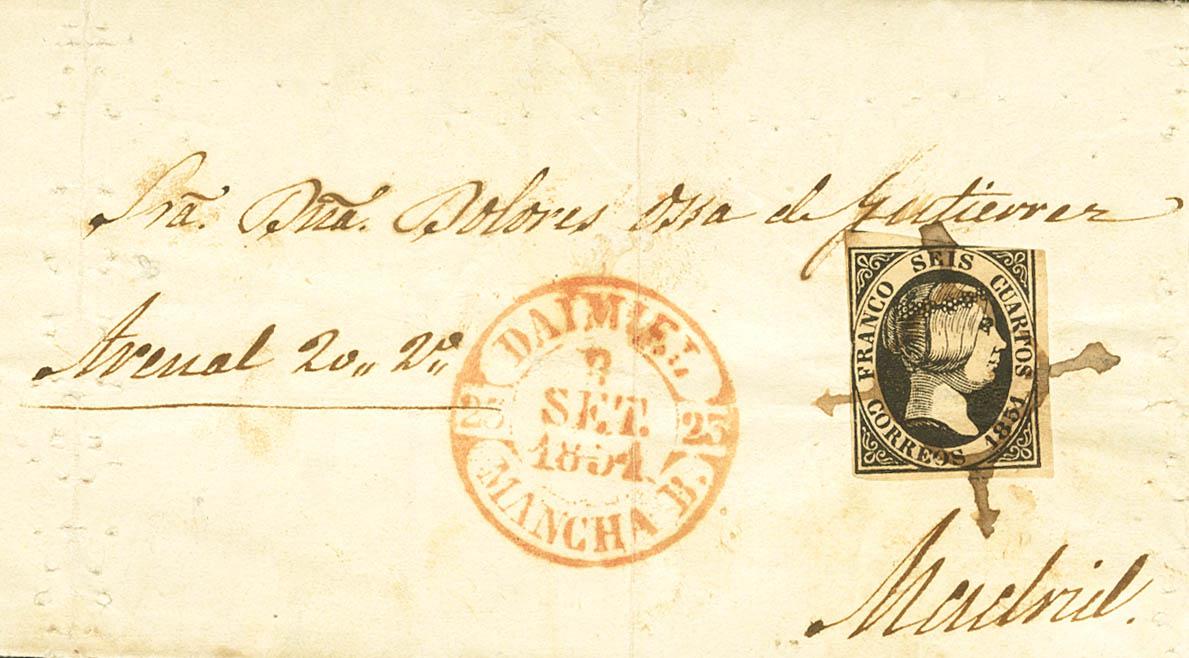 Srã. Dñã. Dolores Ossa de Gutierrez
Arenal 20,, 2º,,
DAIMIEL
25 3 25
SET.
1851
MANCHA B.
FRANCO SEIS CUARTOS
CORREOS 1851
Madrid.